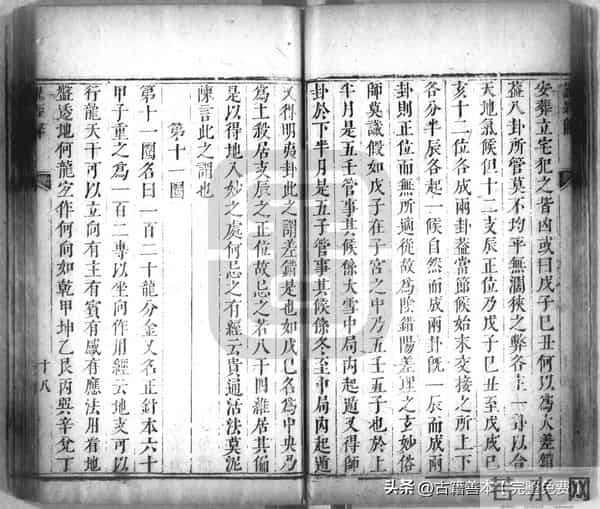 安葬立宅犯之皆凶或曰戊子巳丑何以為大差錯
蓋八卦所管莫不均平無濶狹之弊各主一卦以合
天地氣候但十二支辰正位乃戊子巳丑至戊戌巳
亥十二位各成兩卦蓋當節候始末交接之所上下
各分半辰各起一候自然而成兩卦旣一辰而成兩
卦則正位而無所適從故為陰錯陽差理之玄妙俗
師莫識假如戊子在子宮之中乃五壬五子也於上
半月是五壬管事其候係大雪中局丙起遁又得師
卦於下半月是五子管事其候係冬至中局丙起遁
又得明夷卦此之謂差錯是也如戊巳名為中央乃
為土殺居支辰之正位故忌之若八干四維居其偏
是以得地入妙之處何忌之有經云貴通活法莫泥
陳言此之謂也
第十一圖
第十一圖名曰一百二十龍分金又名正針本六十
甲子重之為一百二專以坐向作用經云地支可以
行龍天干可以立向有主有賓有感有應法用看地
盤透地何龍定作何向如乾甲坤乙艮丙巽辛兌丁
十八
头条 @古籍善本千完整免费